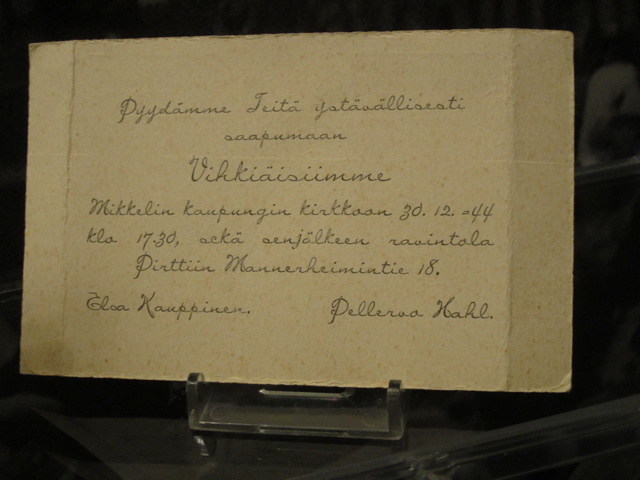 Pyydämme Teitä ystävällisesti
saapumaan
Vihkiäisiimme
Mikkelin kaupungin kirkkoon 30. 12. -44
klo 17.30, sekä senjälkeen ravintola
Pirttiin Mannerheimintie 18.
Elsa Kauppinen. Pellervo Hahl.